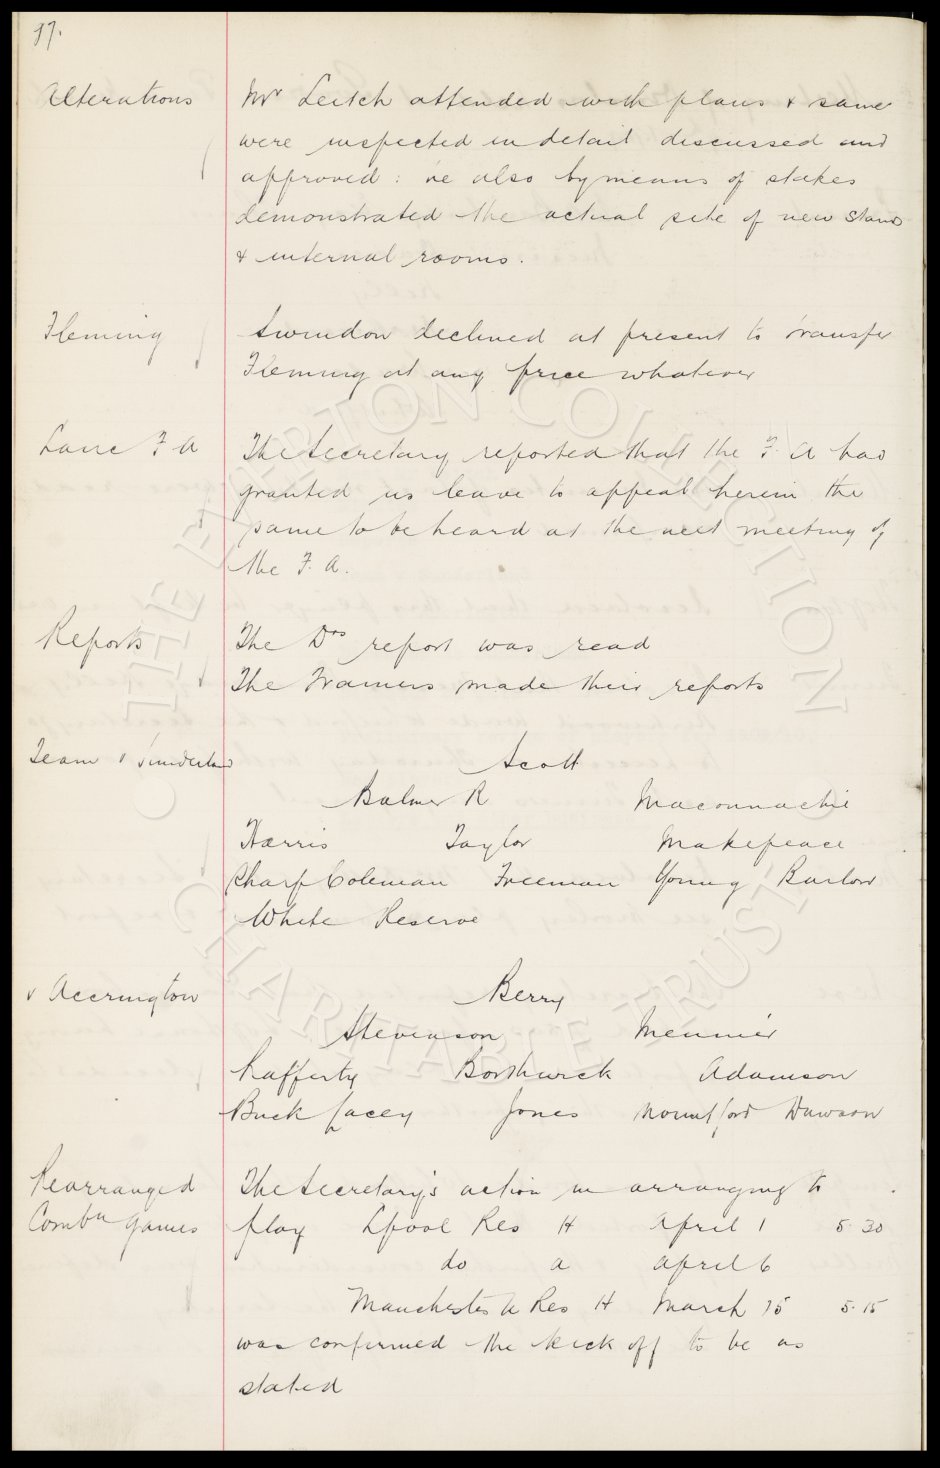 97.
Alterations
Mr Leitch attended with plans & same
were inspected in detail discussed and
approved: he also by means of stakes
demonstrated the actual site of new stand
& internal rooms.
Fleming
Swindon declined at present to transfer
Fleming at any price whatever
Lanc F A
The Secretary reported that the F. A had
granted us leave to appeal herein the
same to be heard at the next meeting of
the F. A.
Reports
The Drs report was read
The Trainers made their reports
Team v Sunderland
Scott
Balmer R Maconnachie
Harris Taylor Makepeace
Sharp Coleman Freeman Young Barlow
White Reserve
v Accrington
Berry
Stevenson Meunier
Rafferty Borthwick Adamson
Buck Lacey Jones Mountford Dawson
Rearranged
Combn games
The Secretary's action in arranging to
play Lpool Res H April 1 5.30
do a April 6
Manchester U Res H March 15 5.15
was confirmed the kick off to be as
stated
© THE EVERTON COLLECTION CHARITABLE TRUST